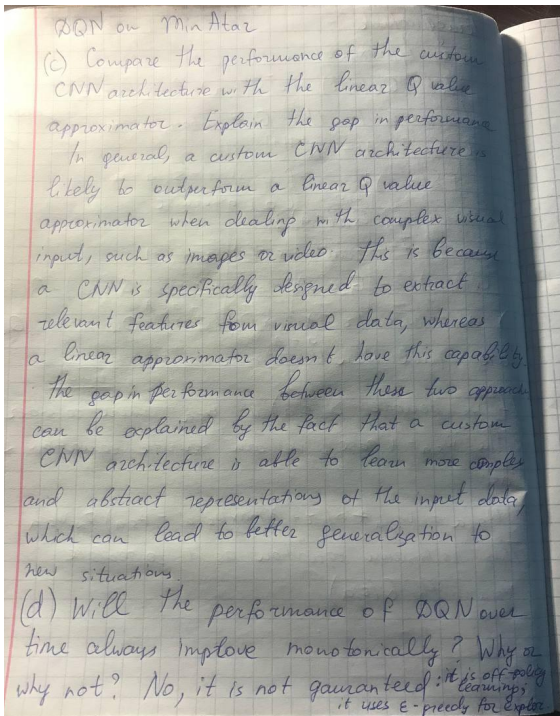 DQN on MinAtar
(c) Compare the performance of the custom
CNN architecture with the linear Q value
approximator. Explain the gap in performance
In general, a custom CNN architecture is
likely to outperform a linear Q value
approximator when dealing with complex visual
input, such as images or video. This is because
a CNN is specifically designed to extract
relevant features fom visual data, whereas
a linear approximator doesn't have this capability.
The gap in performance between these two approach
can be explained by the fact that a custom
CNN architecture is able to learn more complex
and abstract representations of the input data,
which can lead to better generalization to
new situations.
(d) Will the performance of DQN over
time always improve monotonically? Why or
why not? No, it is not gauranteed: it is off-policy
learning;
it uses ε-greedy for explor